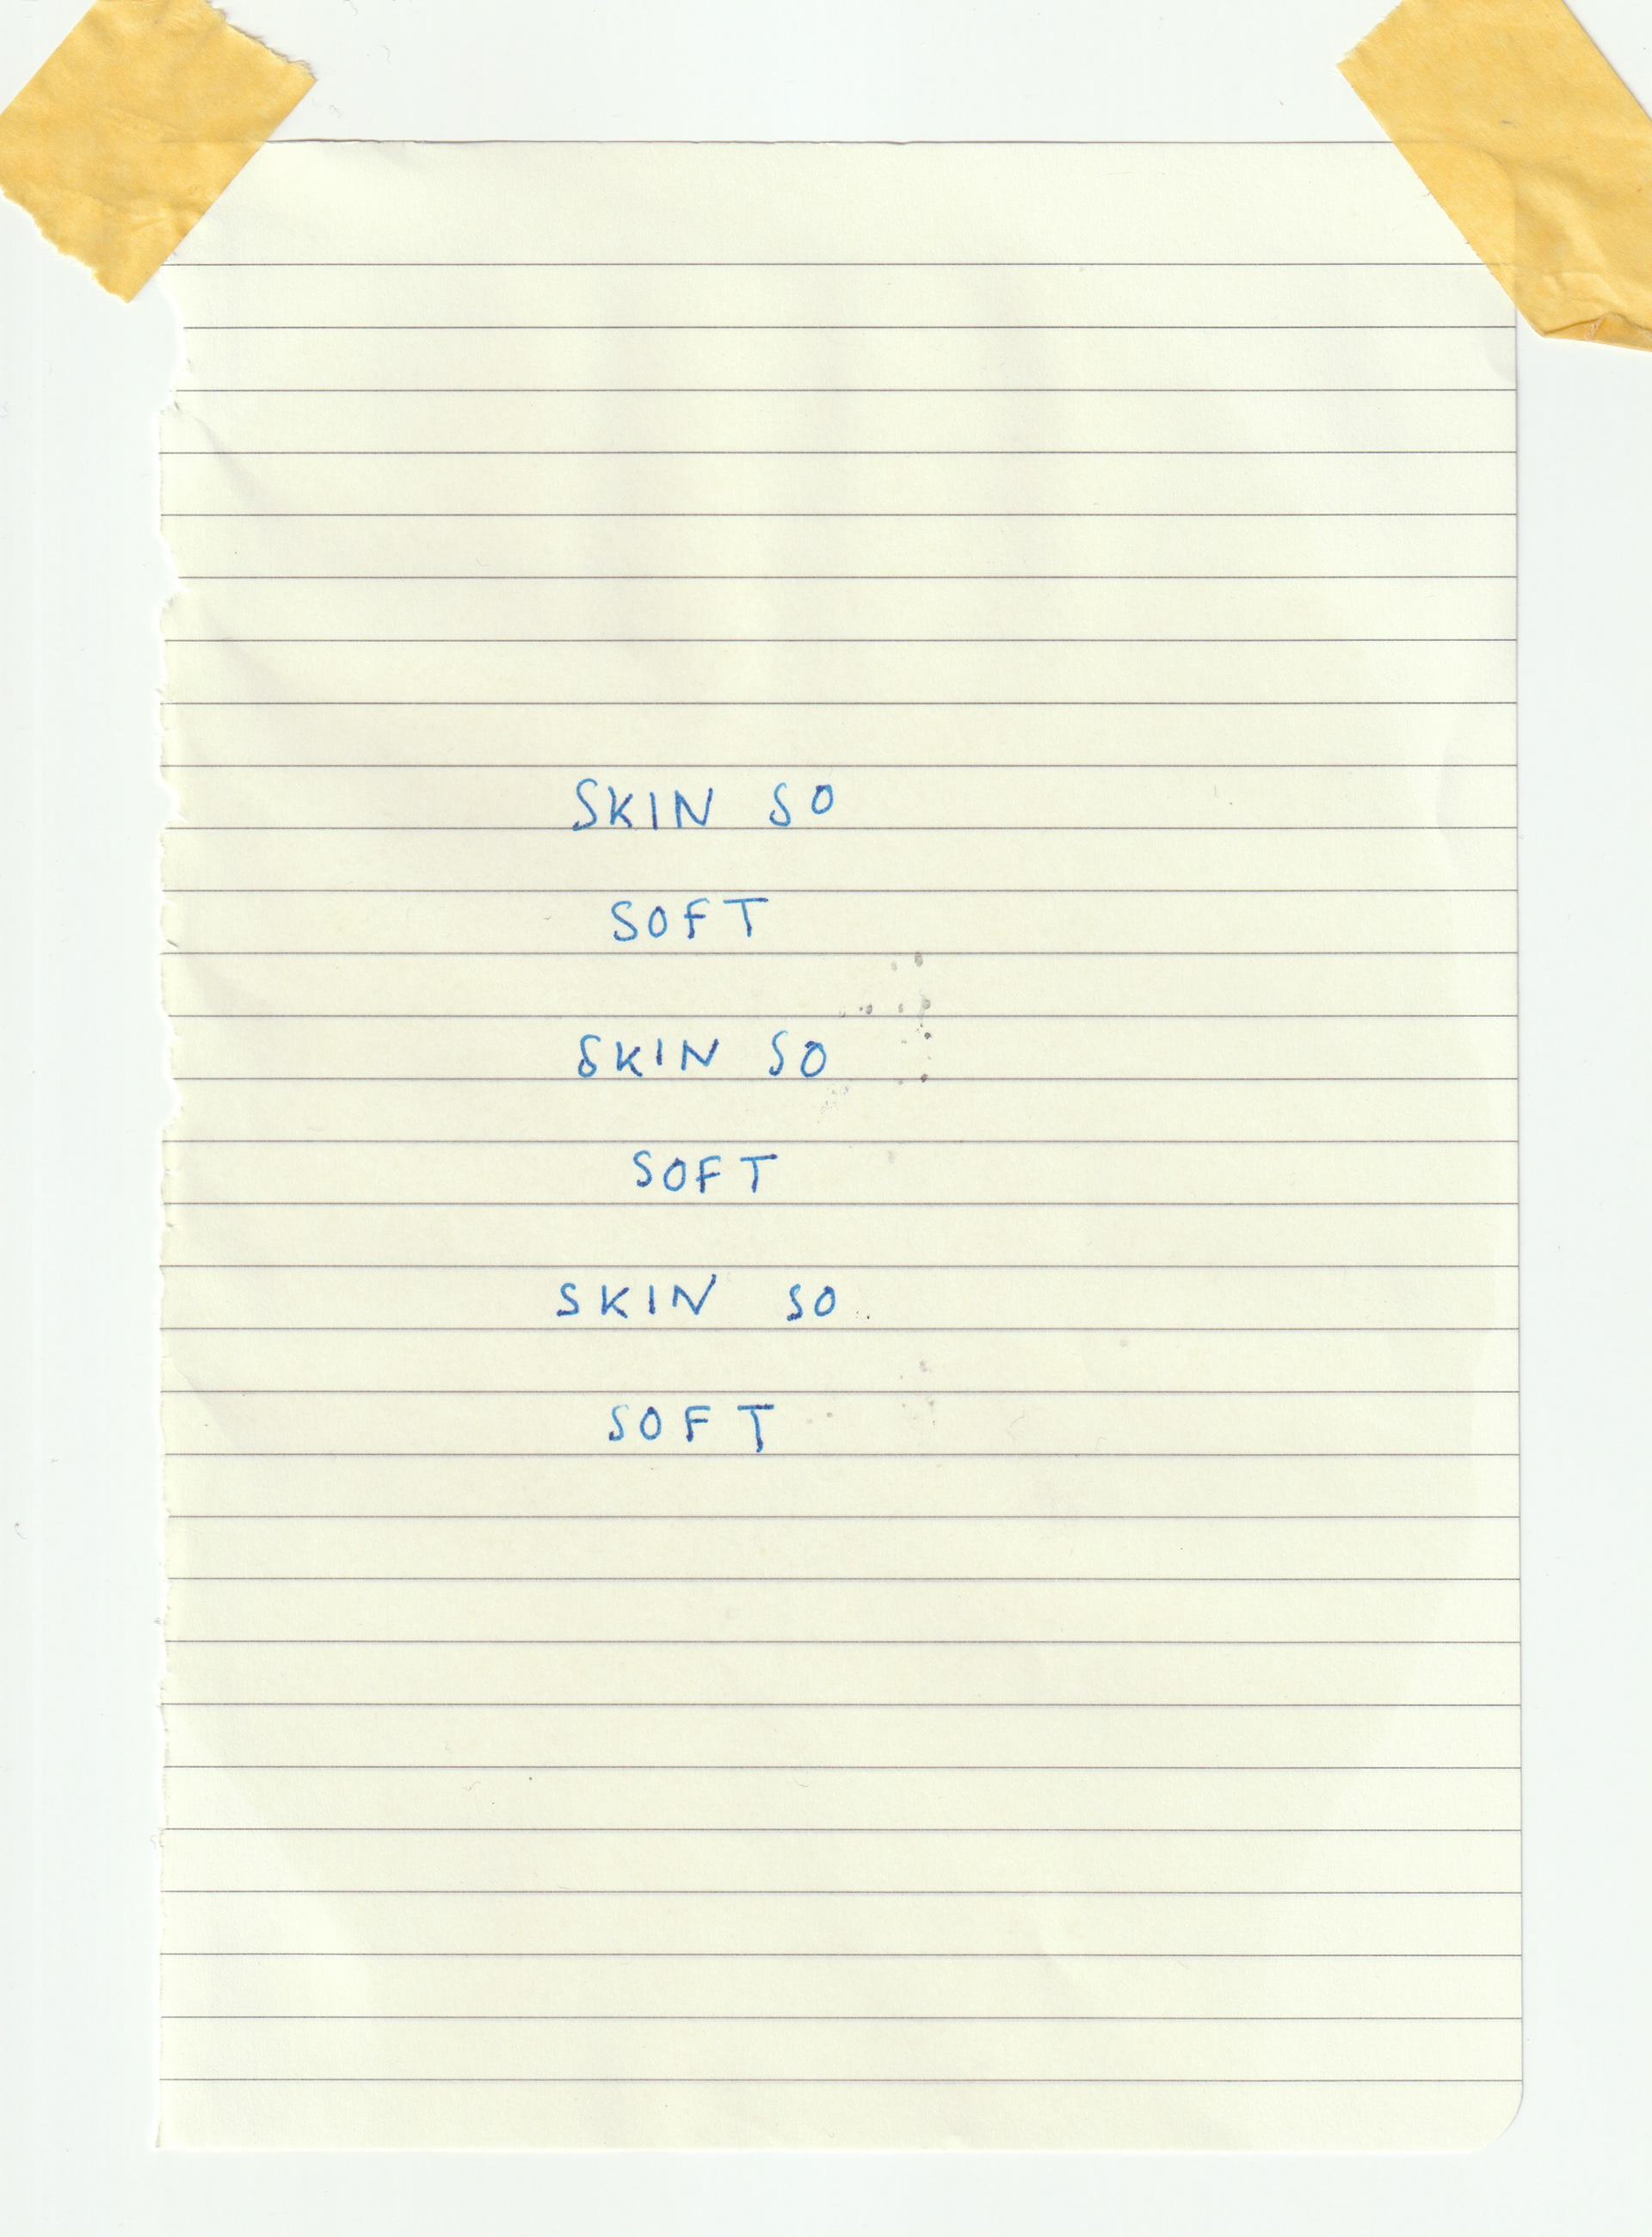 SKIN SO
SOFT
SKIN SO
SOFT
SKIN SO
SOFT